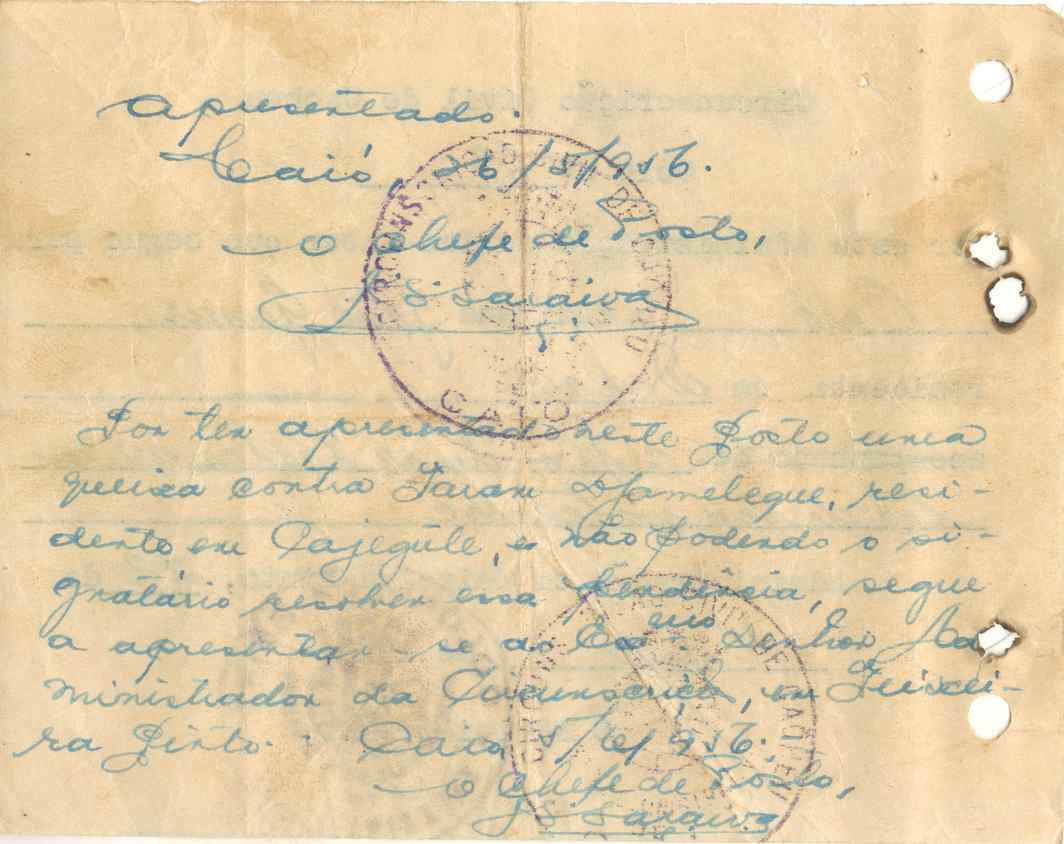 apresentado.
Caió, 26/5/956.
O Chefe de Posto,
J S Saraiva
CAIO
Por ter apresentado neste Posto uma
queixa contra Jaram Djamelegue, resi-
dente em Cajegute, e não podendo o si-
gnatário resolver essa pendência, segue
a apresentar-se ao Exmo. Senhor Ad
ministrador da Circunscrição, em Teixei-
ra Pinto. Caió, 5/6/956.
O Chefe de Posto,
J S Saraiva